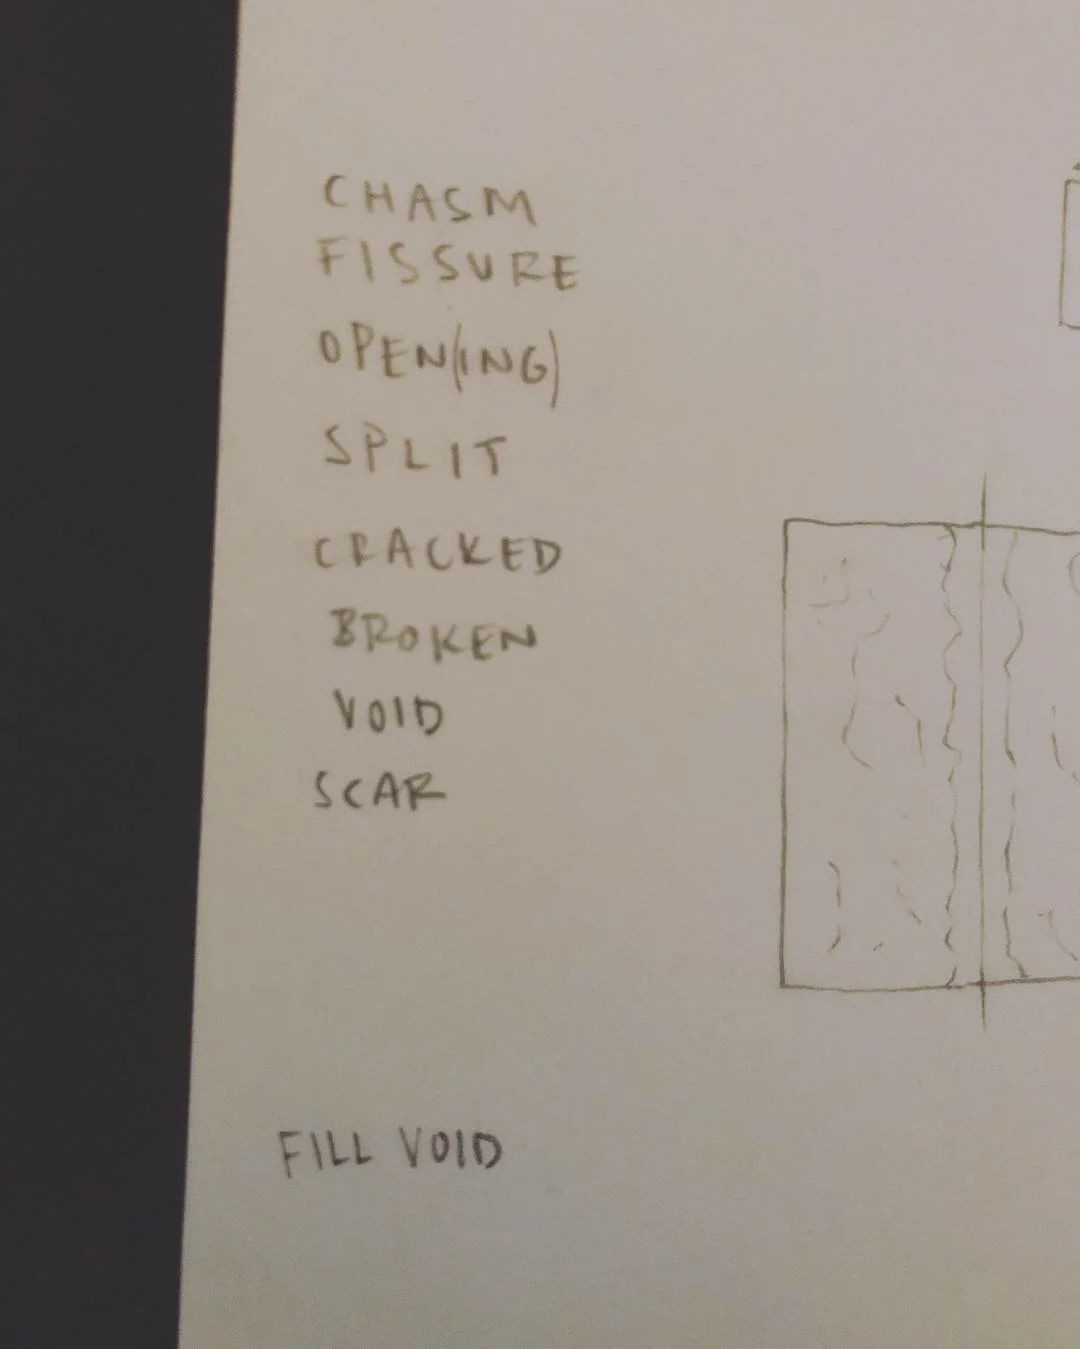 CHASM
FISSURE
OPEN(ING)
SPLIT
CRACKED
BROKEN
VOID
SCAR
FILL VOID